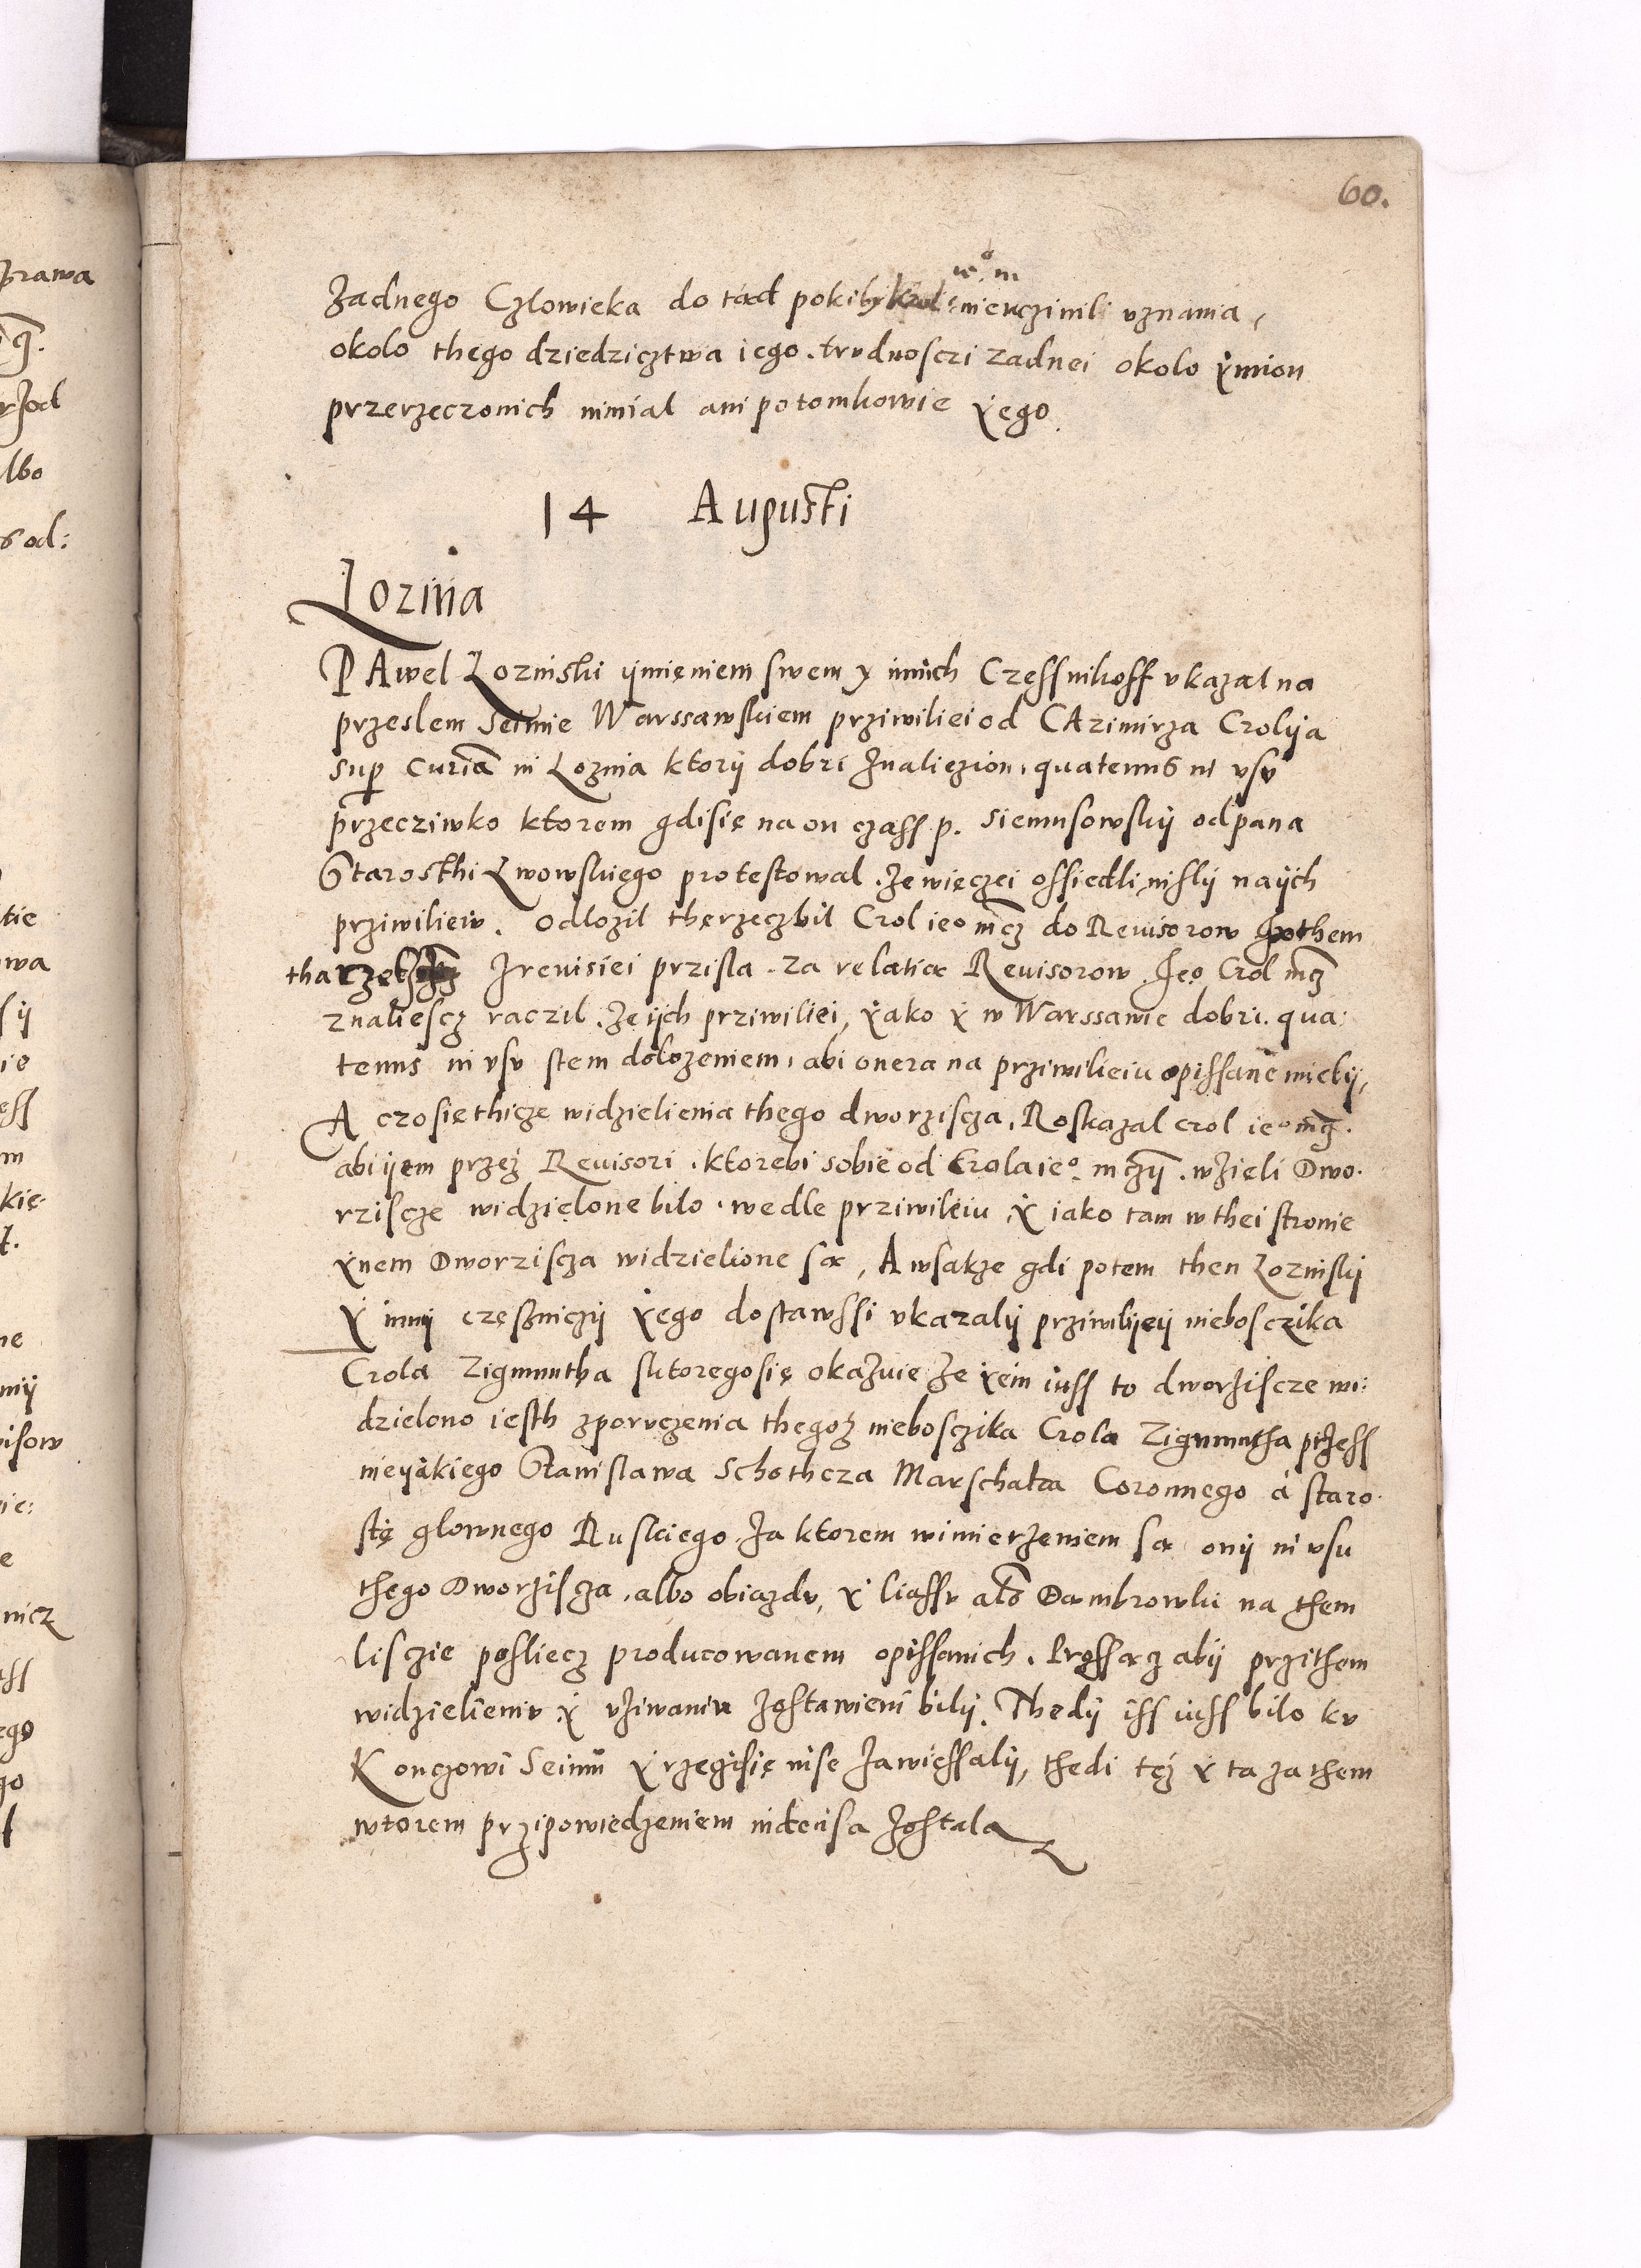 60.
Zadnego Czlowieka do tąd pokiby nieuczinili uznania,
okolo thego dziedzicztwa iego. trudnosczi zadnei okolo ẏmion
przerzeczonich nimial ani potomkowie ẏego.
14 Augusti
Łozina
PAwel Łozniski ijmięniem swem y innich Czessnikoff ukazał na
przeslem Seimie Warssawskiem prziwiliei od CAzimirza Crolija
sup Curia in Łoznia ktorij dobri Znaliezion, quatenus in usu
przecziwko ktorem gdisię na on czass p. Siemusowskij od pana
Starosthi Lwowskiego protestowal. Ze więczei ossiedli nisly na ijch
prziwiliew. Odlozil thę rzecz bil Crol ieo mcz do Reuisorow pothem
tha rzecz Z reuisiei przisla. Za relatią Reuisorow. Jeo Crol mcz
znaliescz raczil. Ze ijch prziwiliei, ẏako ẏ w Warssawie dobri. qua:
tenus in usu stem dolozeniem, abi onera na prziwilieiu opissane mielij,
A czo się thicze widzielienia thego dworziscza. Roskazal crol ieo mcz.
abi ijem przez Reuisori. ktorebi sobie od Crola ieo. mczij. wzieli Dwo.
rziscze widzielone bilo. wedle prziwileiu ẏ iako tam w thei stronie
ẏnem Dworziscza widzielione są, A wsakze gdi potem then Łozniskij
ẏ innij częsniczij ẏego dostawssi ukazalij prziwilijeij nieboscżika
Crola Zigmuntha sktorego się okazuie Ze ẏem iuss to dworziscze wi:
dzielono iesth z poruczenia thegoz niebosczika Crola Zigmuntha przess
nieijakiego Stanislawa Schothcza Marschałca Coronnego á staro.
stę glownego Ruskiego. Za ktorem wimierzeniem są onij in usu
thego Dworzisza, albo obiazdu, ẏ liassu albo Dąmbrowki na them
lisczie posliecz producowanem opissanich. Prossącz abij przithem
widzielieniu ẏ uziwaniu Zostawieni bilij. Thedij iss iuss bilo ku
Konczowi Seimu ẏ rzeczi się inse Zawiessalij, thedi tez ẏ ta za them
wtorem przipowiedzeniem indecisa Zostala